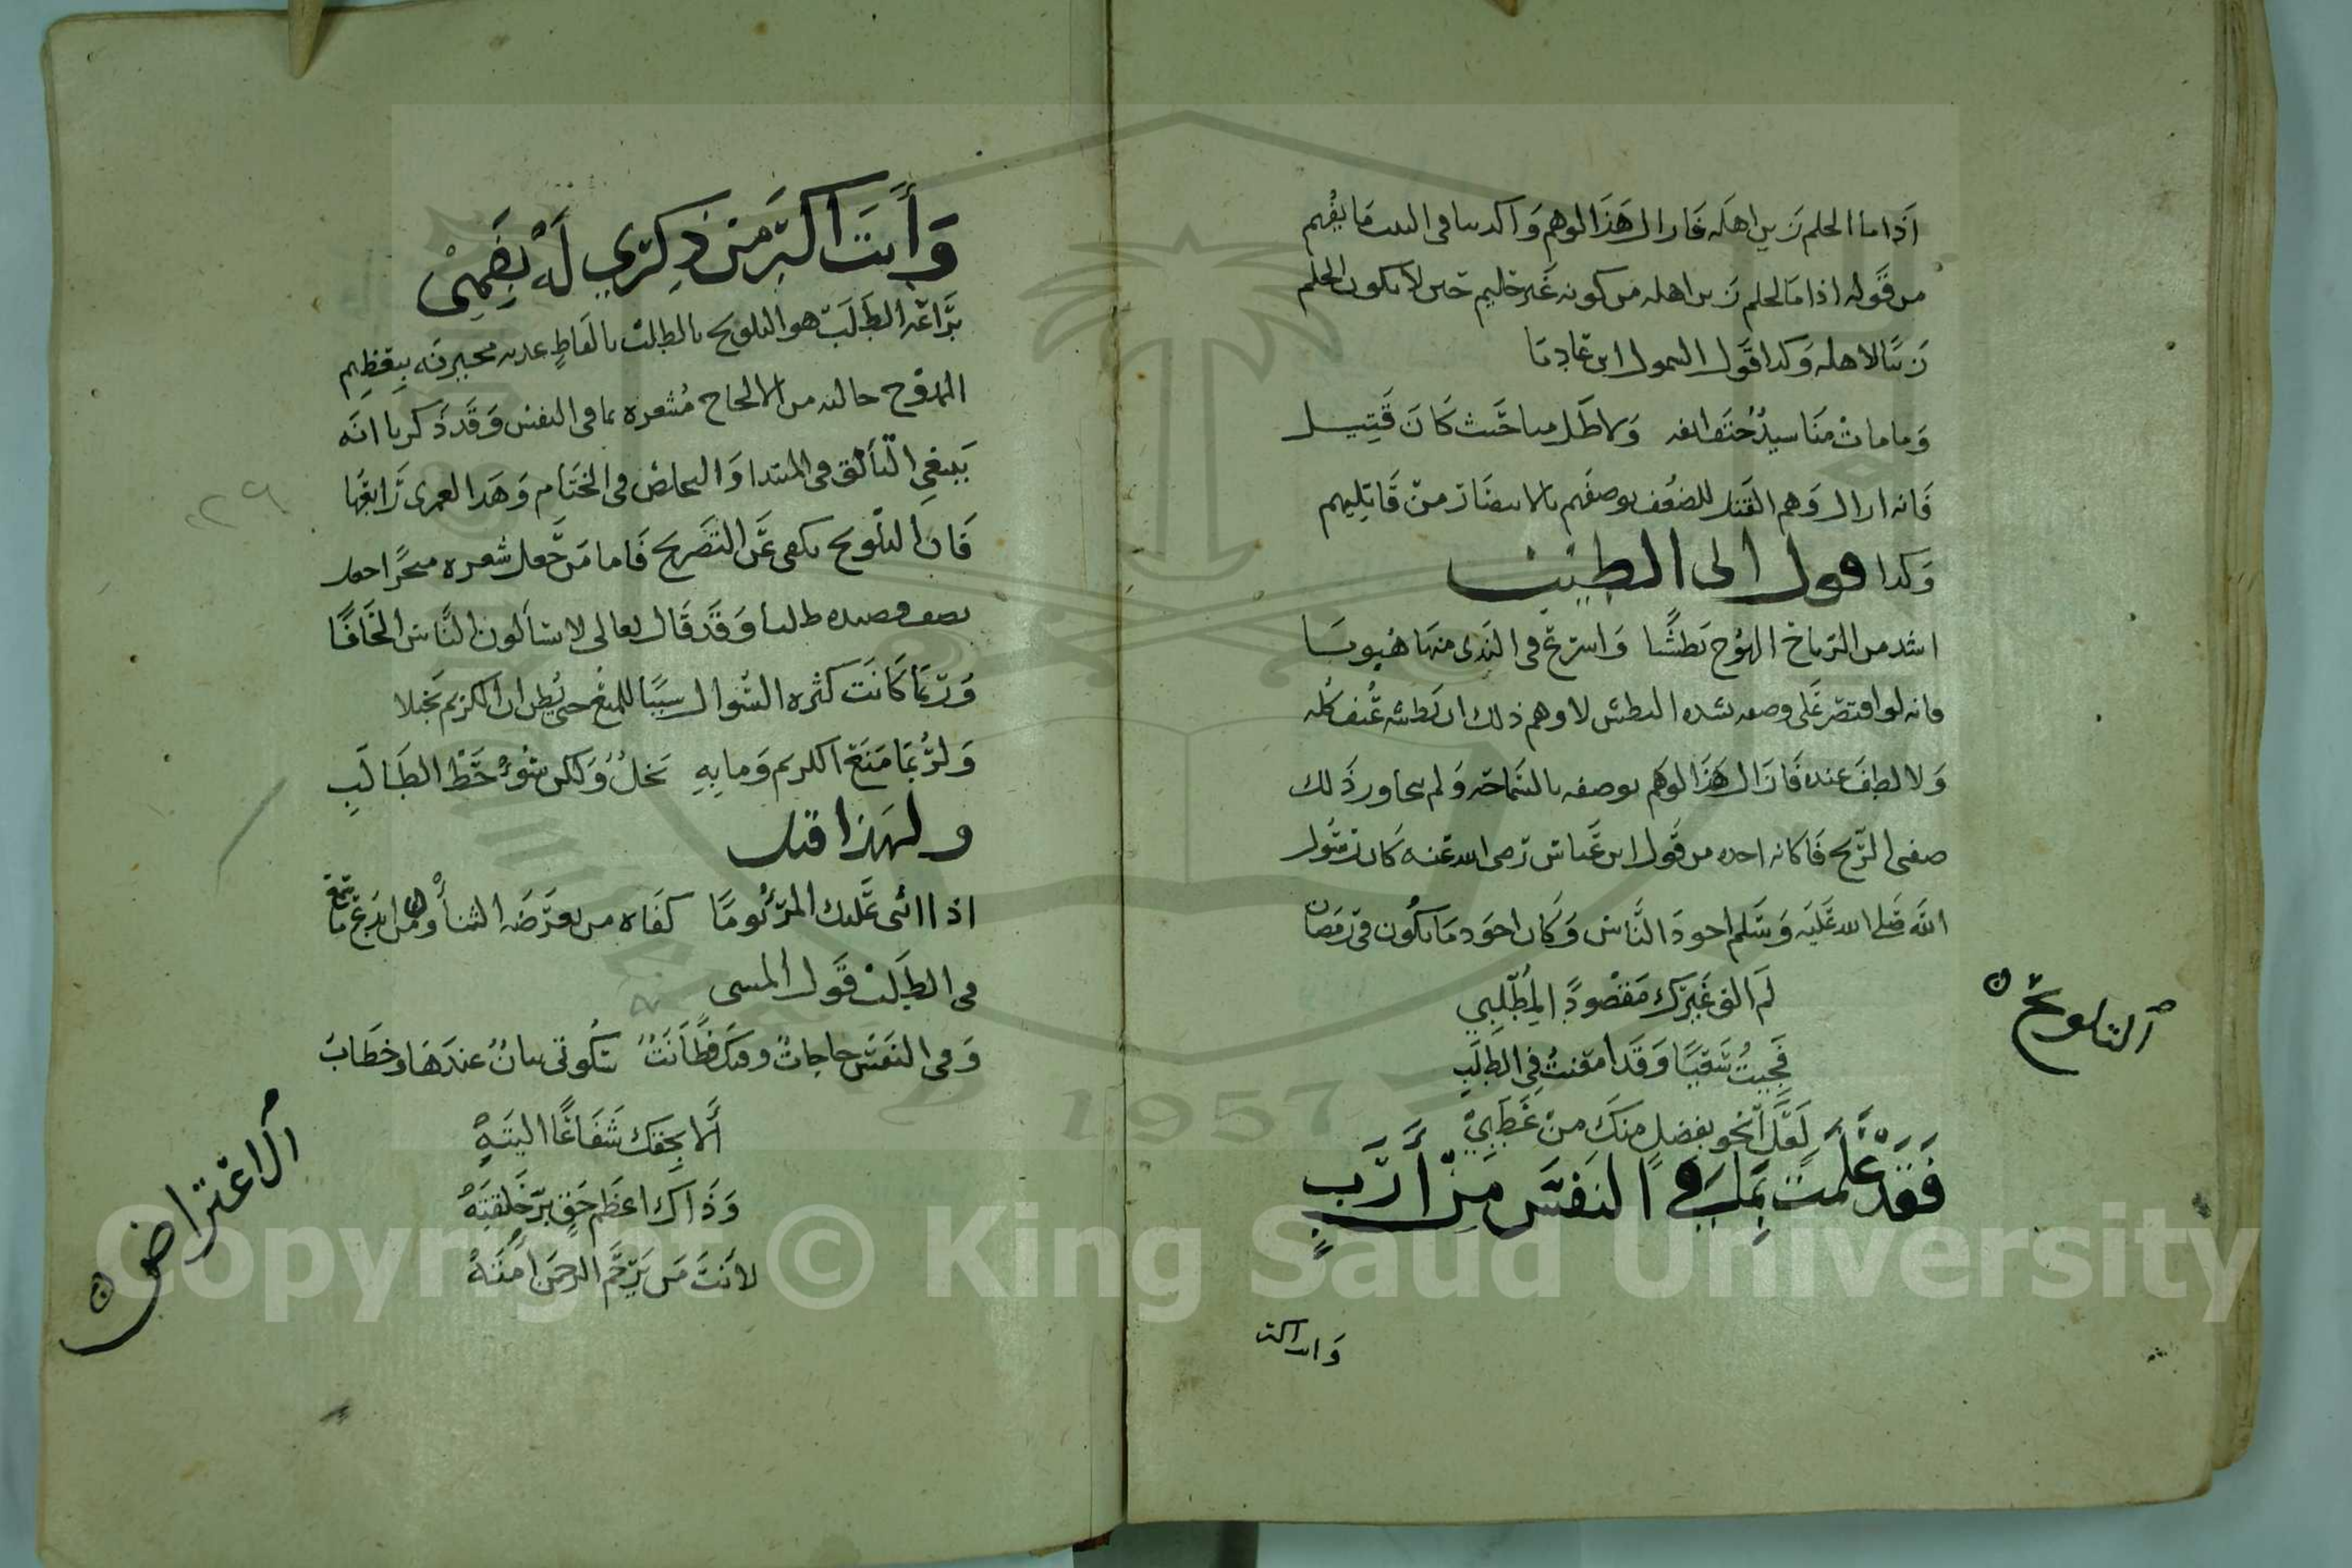 اذا ما الحلم زين اهله فازال هذا الوهم واكد ما فى البيت ما يفهم
من قوله اذا ما الحلم زين اهله من كونه غير حليم حين لا يكون الحلم
زينا لاهله وكذا قول السموال ابن عاديا
وما مات منا سيد حتف انفه ولا طل منا حيث كان قتيل
فانه ازال وهم القتل للضعف بوصفهم بالانتصار من قاتليهم
وكذا قول ابى الطيب
اشد من الرياح الهوج بطشا واسرع فى الندى منها هبوبا
فانه لو اقتصر على وصفه بشدة البطش لاوهم ذلك ان بطشه عنف كله
ولا لطف عنده فازال هذا الوهم بوصفه بالسماحة ولم يجاوز ذلك
صفتى الريح فكانه اخذه من قول ابن عباس رضى الله عنه كان رسول
الله صلى الله عليه وسلم اجود الناس وكان اجود ما يكون فى رمضان
التلويح
لم الق غيرك مقصودا لمطلبى
فجيت شقيا وقد امعنت فى الطلب
لعل انجو بفضل منك من عطبى
فقد علمت بما فى النفس من أرب
وانت اكبر
وأنت اكبر من ذكرى له بفمى
براعة الطلب هو التلويح بالطلب بالفاظ عذبة مقترنة بتعظيم
الممدوح خالية من الالحاح مشعرة بما فى النفس وقد ذكرنا انه
ينبغى التأنق فى المبتدا والتخلص والختام وهذا لعمرى رابعها
فان التلويح يكفى عن التصريح فاما من جعل شعره متجرا جعل
نصف قصيده طلبا وقد قال تعالى لا يسألون الناس الحافا
وربما كانت كثرة السؤال سببا للمنع حتى يظن ان الكريم بخيلا
ولربما منع الكريم وما به بخل ولكن سوء حظ الطالب
ولهذا قيل
اذا اثنى عليك المرء يوما كفاه من تعرضه الثناء ومن ابدع ما سمع
فى الطلب قول المتنبى
وفى النفس حاجات وفيك فطانة سكوتى بيان عندها وخطاب
الاعتراض
ألا بحقك شفاعا اليته
وذاك اعظم حق بر خلقته
لانت من يرحم الرحمن امته